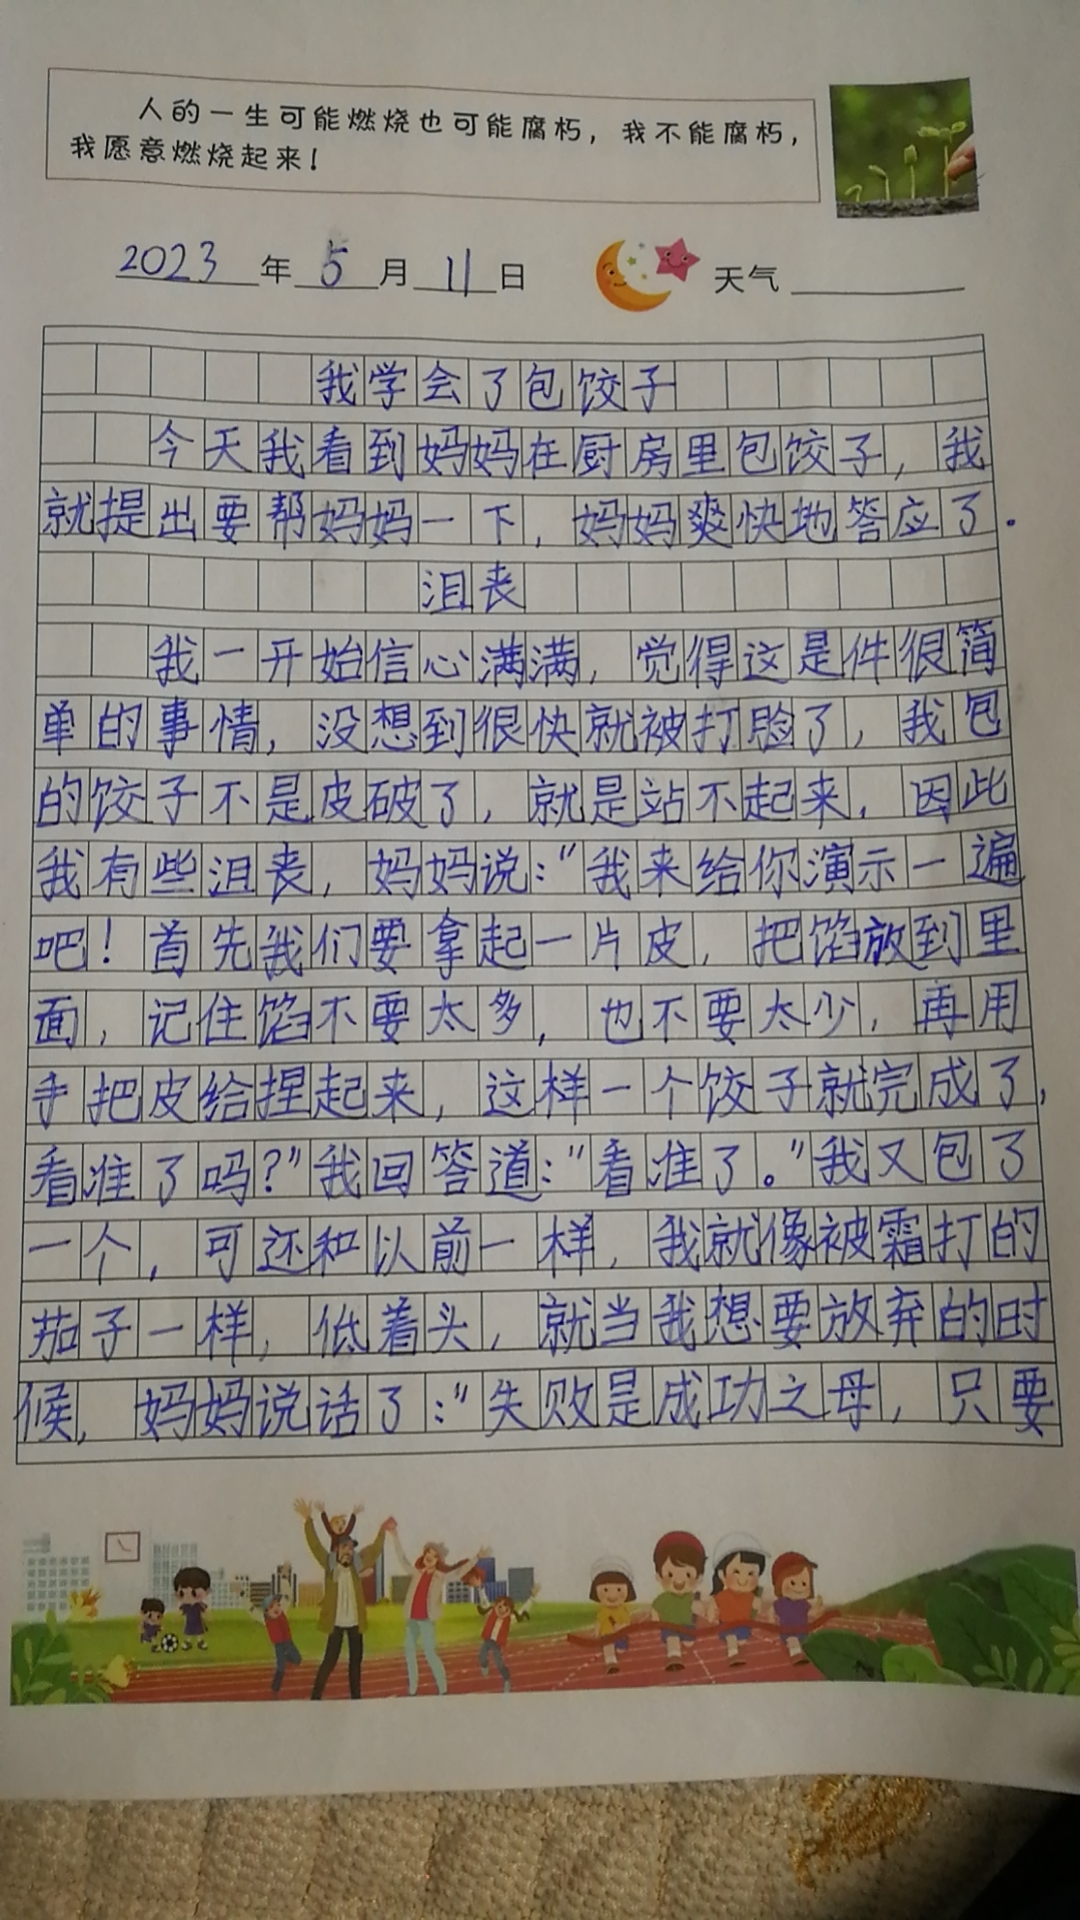 人的一生可能燃烧也可能腐朽，我不能腐朽，
我愿意燃烧起来！
2023年5月11日 天气
我学会了包饺子
今天我看到妈妈在厨房里包饺子，我
就提出要帮妈妈一下，妈妈爽快地答应了.
沮丧
我一开始信心满满，觉得这是件很简
单的事情，没想到很快就被打脸了，我包
的饺子不是皮破了，就是站不起来，因此
我有些沮丧，妈妈说："我来给你演示一遍
吧！首先我们要拿起一片皮，把馅放到里
面，记住馅不要太多，也不要太少，再用
手把皮给捏起来，这样一个饺子就完成了，
看准了吗？"我回答道："看准了。"我又包了
一个，可还和以前一样，我就像被霜打的
茄子一样，低着头，就当我想要放弃的时
候，妈妈说话了："失败是成功之母，只要